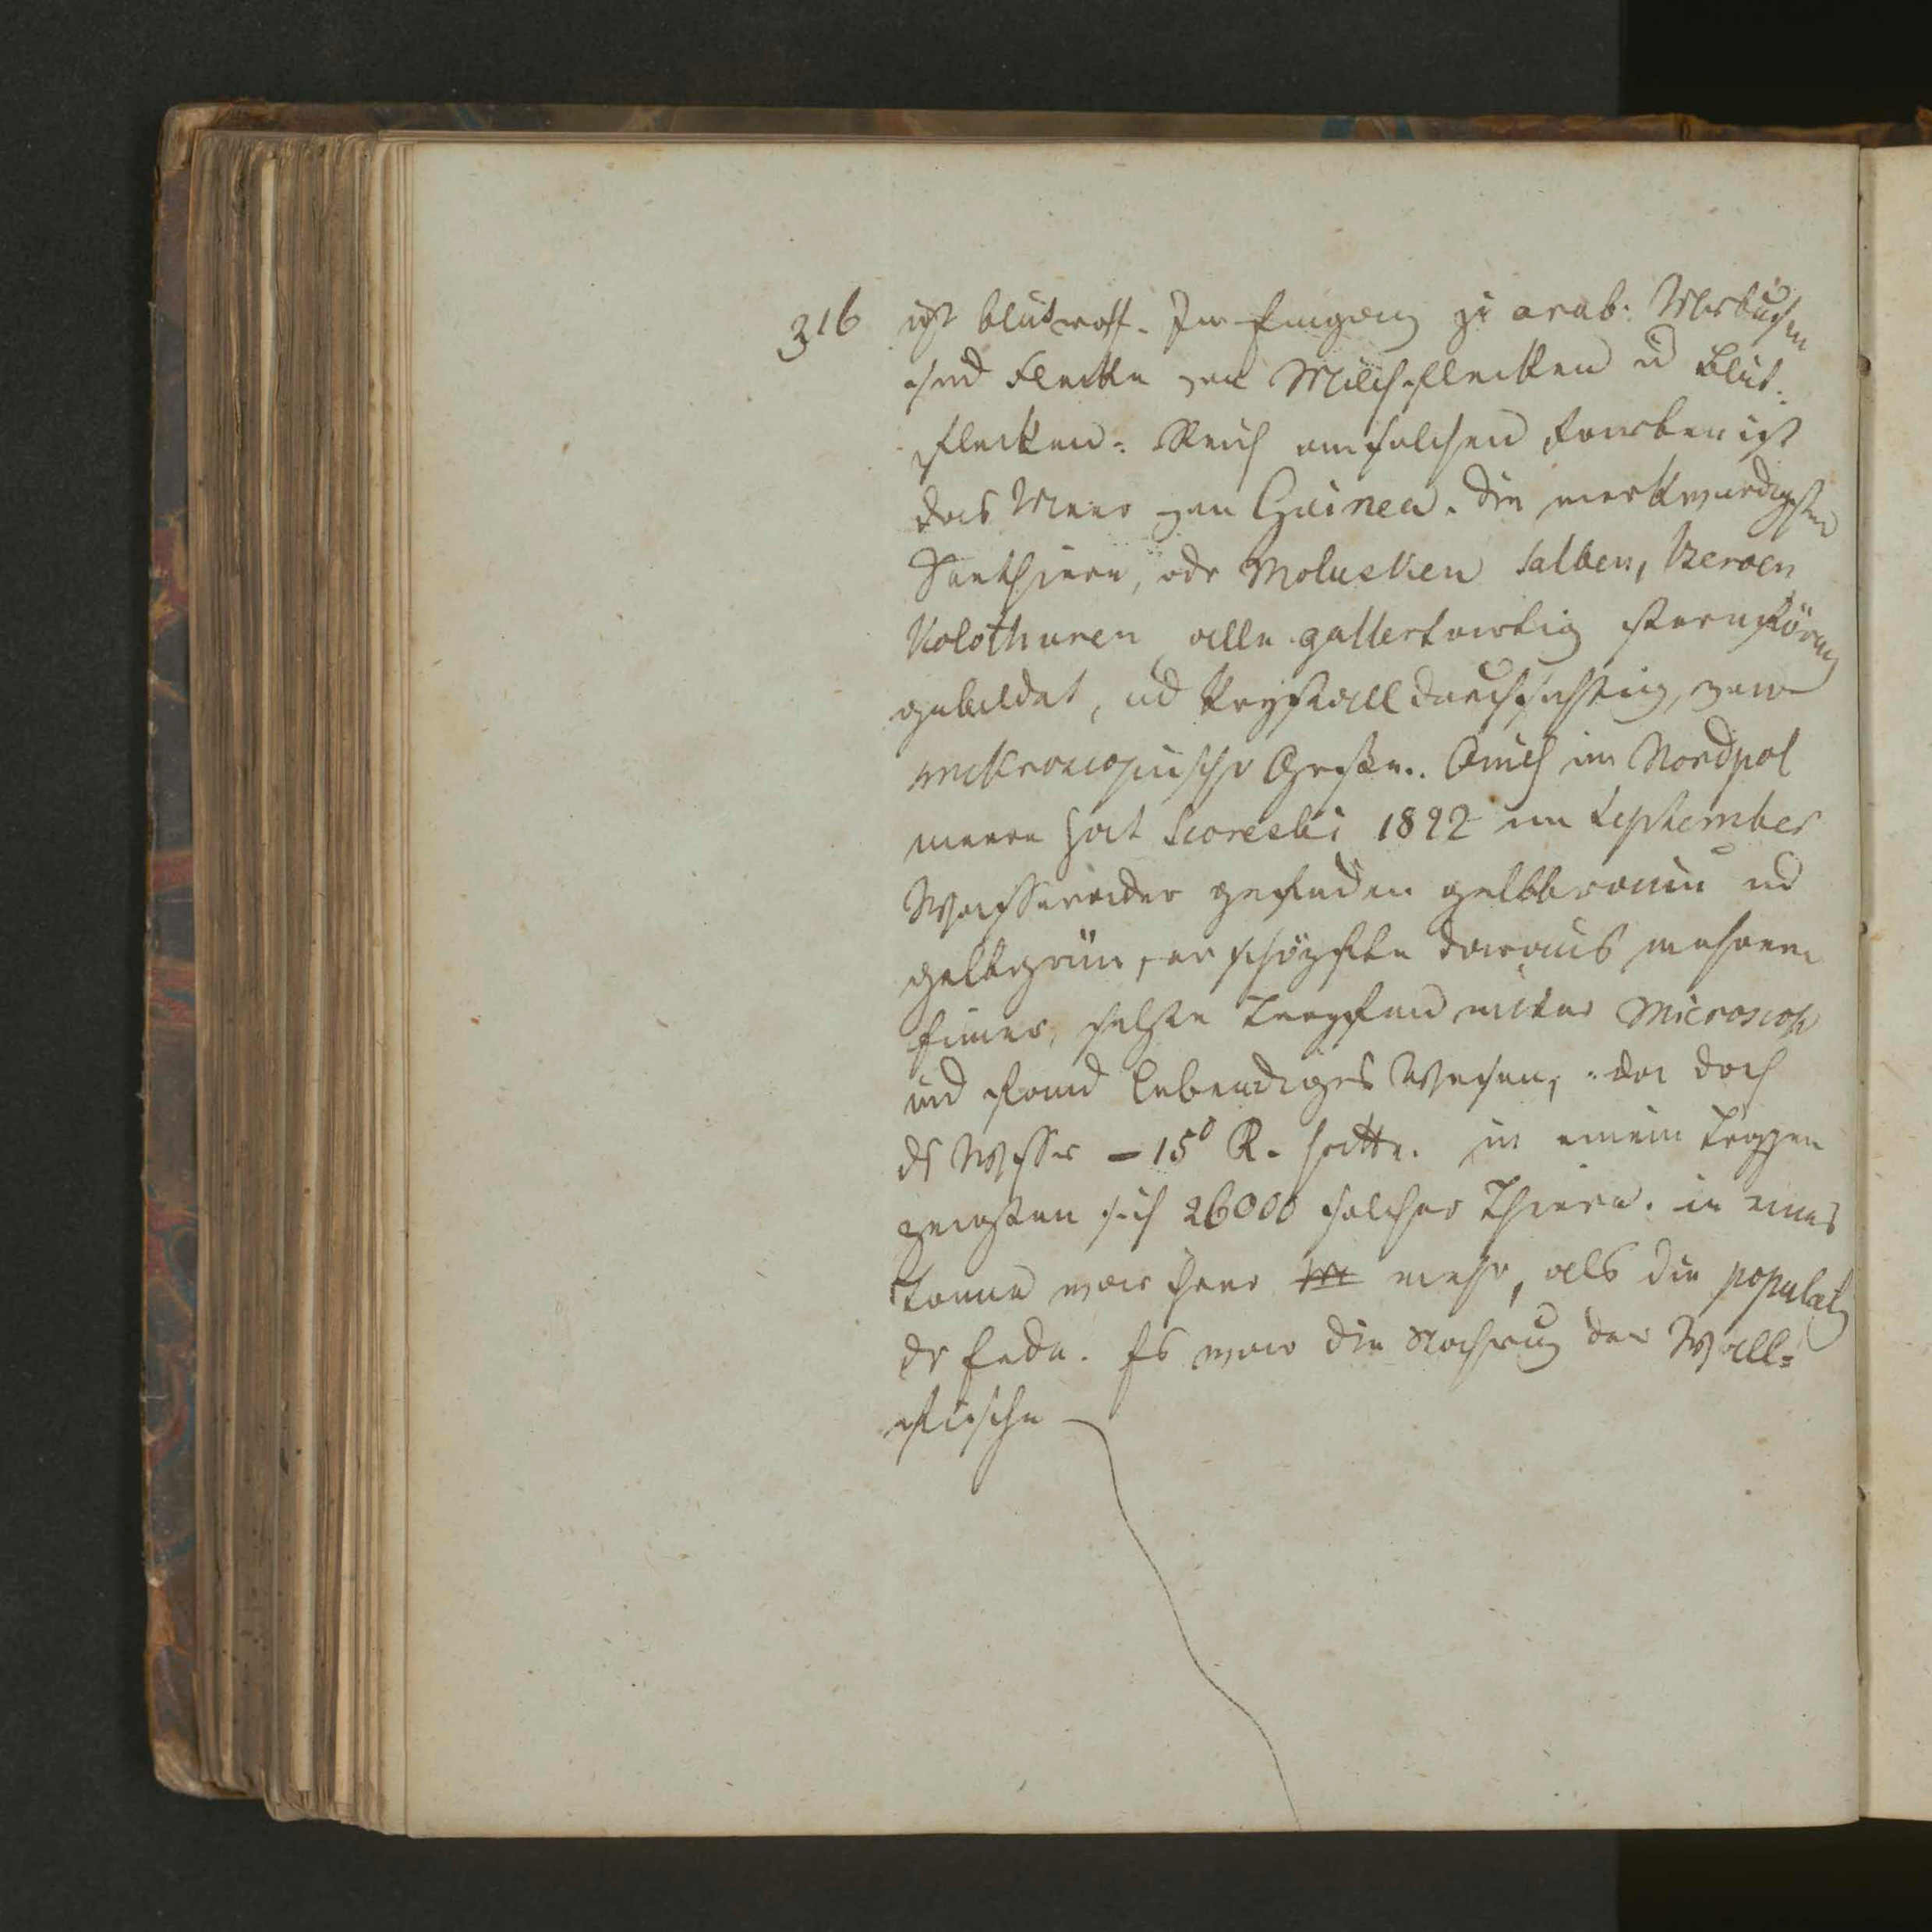 316 ist blutroth. Im Eingang zu arab: Merbusen
sind Flecke von Milchflecken u Blut:
flecken: Reich an solchen Farben ist
das Meer von Guinea. Die merkwurdigsten
Seethiere, odr Molusken Salben, Beroen
Kolothuren alle gallertartig sternförmig
gebildet, ud krystalldurchsichtig, von
mikroscopischr Grösse. Auch im Nordpol
meere hat Scoresbi 1822 im September
gefunden gelbbraun ud
gelbgrün, er schöpfte daraus mehrere
Eimer, setzte Tropfen unter Microscop
und fand lebendiges Wesen, da doch
ds Wasser – 15° R. hatte. in einem Tropfen
zeigten sich 26000 solcher Thiere. in einer
Tonne war ihrer m mehr, als die populatg
dr Erde. Es war die Nahrung der Wall=
fische